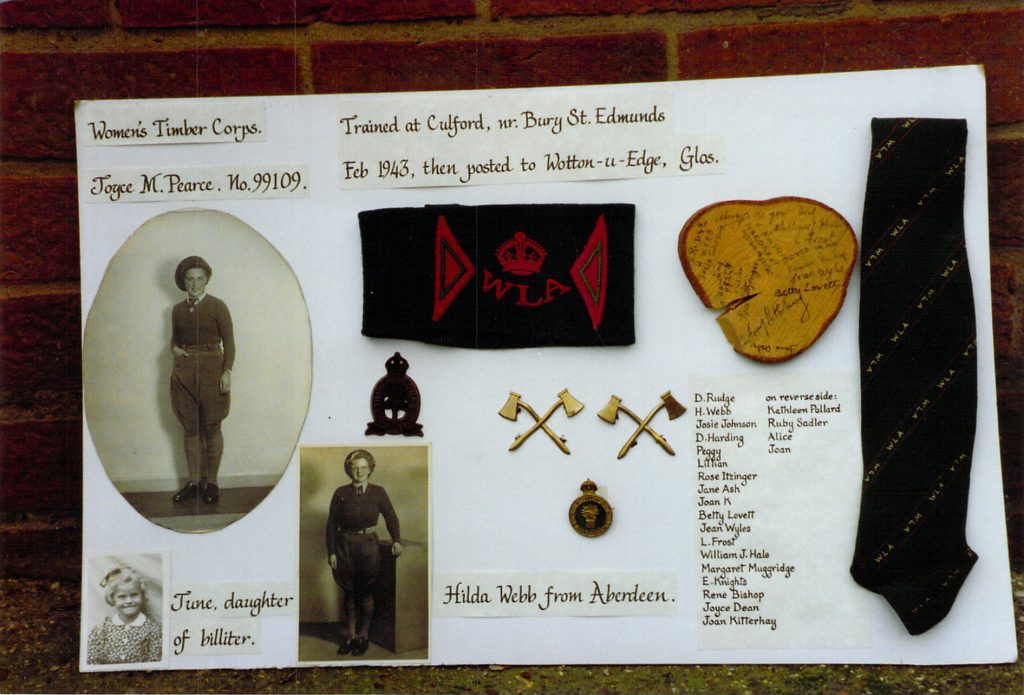 Women's Timber Corps.
Joyce M. Pearce. No. 99109.
Trained at Culford, nr. Bury St. Edmunds
Feb 1943, then posted to Wotton-u-Edge, Glos.
WLA
Betty Lovett
D. Rudge
H. Webb
Josie Johnson
D. Harding
Peggy
Lillian
Rose Itzinger
Jane Ash
Joan K
Betty Lovett
Jean Wyles
L. Frost
William J. Hale
Margaret Muggridge
E. Knights
Rene Bishop
Joyce Dean
Joan Kitterhay
on reverse side:
Kathleen Pollard
Ruby Sadler
Alice
Joan
WLA
WLA
WLA
WLA
WLA
WLA
WLA
WLA
WLA
WLA
WLA
WLA
June, daughter
of billiter.
Hilda Webb from Aberdeen.